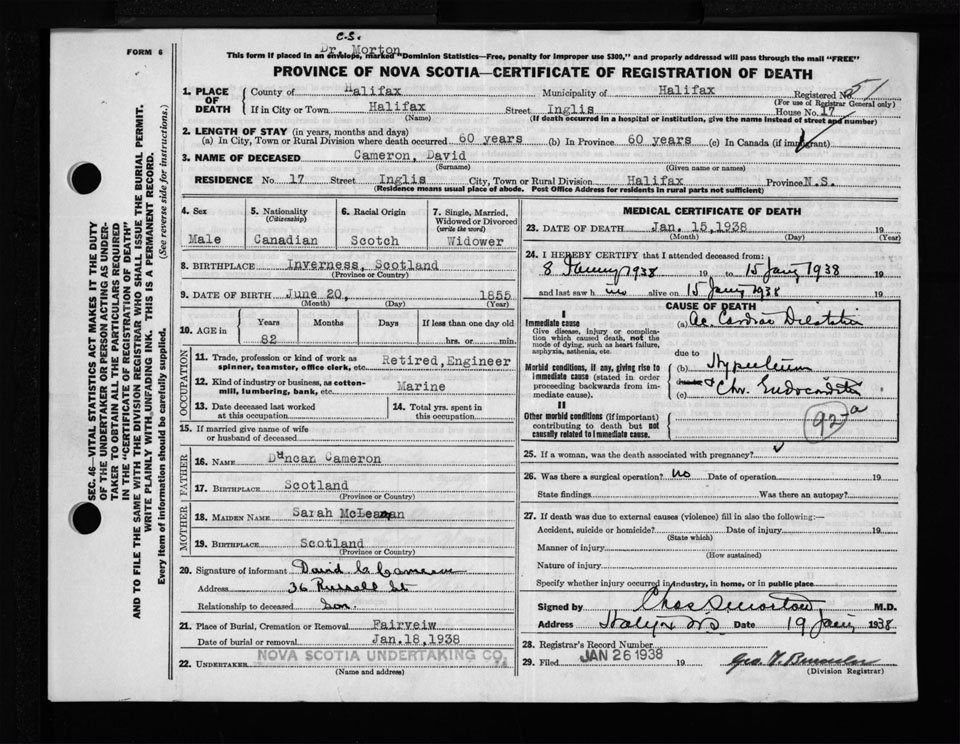 C.S.
Dr. Morton
FORM 6
This form if placed in an envelope, marked "Dominion Statistics—Free, penalty for improper use $300," and properly addressed will pass through the mail "FREE"
PROVINCE OF NOVA SCOTIA—CERTIFICATE OF REGISTRATION OF DEATH
1. PLACE OF DEATH
County of Halifax Municipality of Halifax Registered No. 51
(For use of Registrar General only)
If in City or Town Halifax Street Inglis House No. 17
(Name) (If death occurred in a hospital or institution, give the name instead of street and number)
2. LENGTH OF STAY (in years, months and days)
(a) In City, Town or Rural Division where death occurred 60 years (b) In Province 60 years (c) In Canada (if immigrant)
3. NAME OF DECEASED Cameron, David
(Surname) (Given name or names)
RESIDENCE No. 17 Street Inglis City, Town or Rural Division Halifax Province N.S.
(Residence means usual place of abode. Post Office Address for residents in rural parts not sufficient)
SEC. 46—VITAL STATISTICS ACT MAKES IT THE DUTY
OF THE UNDERTAKER OR PERSON ACTING AS UNDER-
TAKER TO OBTAIN ALL THE PARTICULARS REQUIRED
IN THE "CERTIFICATE OF REGISTRATION OF DEATH"
AND TO FILE THE SAME WITH THE DIVISION REGISTRAR WHO SHALL ISSUE THE BURIAL PERMIT.
WRITE PLAINLY WITH UNFADING INK. THIS IS A PERMANENT RECORD.
Every item of information should be carefully supplied. (See reverse side for instructions.)
4. Sex
Male
5. Nationality
(Citizenship)
Canadian
6. Racial Origin
Scotch
7. Single, Married,
Widowed or Divorced
(write the word)
Widower
8. BIRTHPLACE Inverness, Scotland
(Province or Country)
9. DATE OF BIRTH June 20, 1855
(Month) (Day) (Year)
10. AGE in
Years Months Days If less than one day old
82 hrs. or min.
OCCUPATION
11. Trade, profession or kind of work as
spinner, teamster, office clerk, etc. Retired, Engineer
12. Kind of industry or business, as cotton-
mill, lumbering, bank, etc. Marine
13. Date deceased last worked
at this occupation
14. Total yrs. spent in
this occupation
15. If married give name of wife
or husband of deceased
FATHER
16. NAME Duncan Cameron
17. BIRTHPLACE Scotland
(Province or Country)
MOTHER
18. MAIDEN NAME Sarah McLennan
19. BIRTHPLACE Scotland
(Province or Country)
20. Signature of informant David C. Cameron
Address 36 Russell St
Relationship to deceased Son.
21. Place of Burial, Cremation or Removal Fairveiw
Date of burial or removal Jan. 18, 1938
22. UNDERTAKER NOVA SCOTIA UNDERTAKING CO.
(Name and address)
MEDICAL CERTIFICATE OF DEATH
23. DATE OF DEATH Jan. 15, 1938 19
(Month) (Day) (Year)
24. I HEREBY CERTIFY that I attended deceased from:
8 January 1938 19 to 15 Jany 1938 19
and last saw him alive on 15 Jany 1938 19
CAUSE OF DEATH
I
Immediate cause
Give disease, injury or complica-
tion which caused death, not the
mode of dying, such as heart failure,
asphyxia, asthenia, etc.
(a) Ac Cardiac Dilatation
due to
Morbid conditions, if any, giving rise to
immediate cause (stated in order
proceeding backwards from im-
mediate cause).
(b)
(c) Chr. Endocarditis
II
Other morbid conditions (if important)
contributing to death but not
causally related to immediate cause.
92-a
25. If a woman, was the death associated with pregnancy?
26. Was there a surgical operation? no Date of operation 19
State findings Was there an autopsy?
27. If death was due to external causes (violence) fill in also the following:—
Accident, suicide or homicide? Date of injury 19
(State which)
Manner of injury
(How sustained)
Nature of injury
Specify whether injury occurred in industry, in home, or in public place
Signed by Chas S Morton M.D.
Address Halifax NS Date 19 Jany 1938
28. Registrar's Record Number
29. Filed JAN 26 1938 19
(Division Registrar)